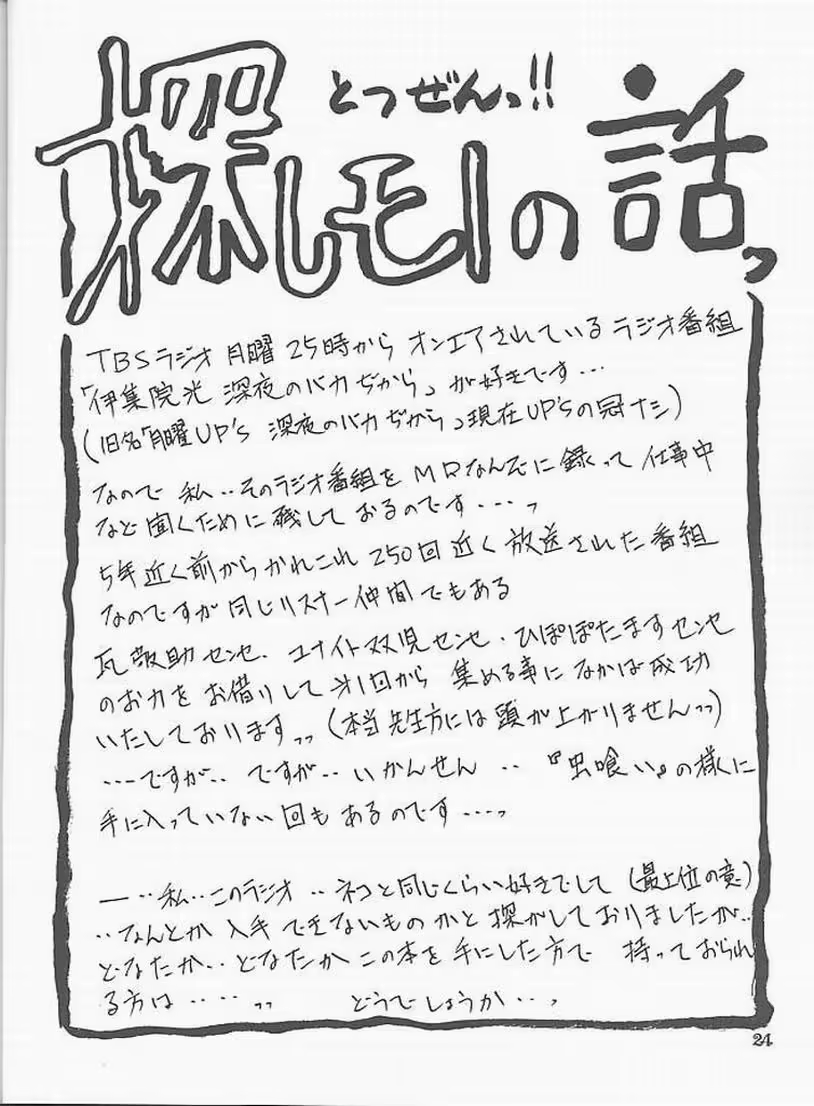 とつぜんっ!!
探しモノの話っ
TBSラジオ 月曜 25時から オンエアされている ラジオ番組
「伊集院光 深夜のバカぢから」が好きです…
(旧名「月曜UP'S 深夜のバカぢから」現在UP'Sの冠ナシ)
なので 私‥そのラジオ番組を MDなんぞに録って 仕事中
など聞くために残しておるのです‥‥っ
5年近く前からかれこれ 250回近く放送された番組
なのですが同じリスナー仲間でもある
瓦敬助センセ、ユナイト双児センセ・ひぽぽたますセンセ
のお力をお借りして 第1回から 集める事に なかば成功
いたしておりますっっ(本当先生方には頭が上がりませんっっ)
‥‥ですが‥ ですが‥ いかんせん ‥ 『虫喰い』の様に
手に入っていない回もあるのです‥‥っ
ー‥私‥このラジオ‥ネコと同じくらい好きでして(最上位の意)
‥なんとか入手できないものかと探がしておりましたが‥
どなたか‥どなたかこの本を手にした方で 持っておられ
る方は‥‥っっ どうでしょうか‥っ
24